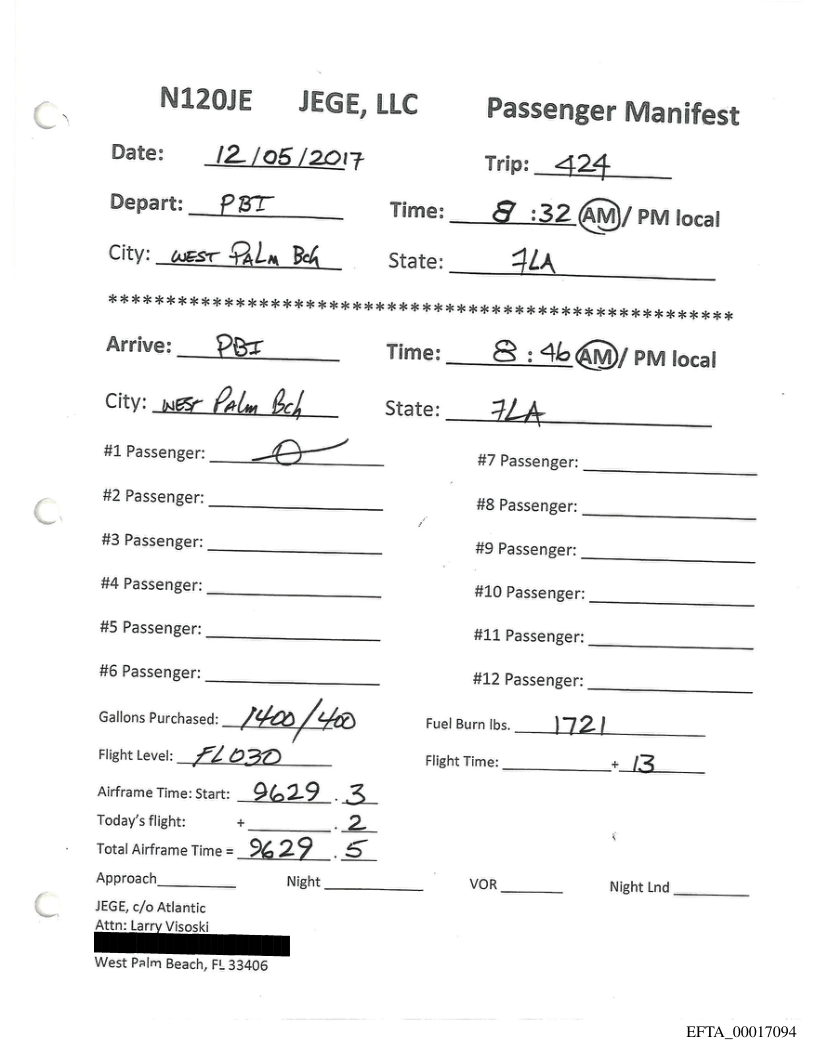 N120JE JEGE, LLC Passenger Manifest
Date: 12/05/2017 Trip: 424
Depart: PBI Time: 8:32 AM/ PM local
City: WEST PALM Bch State: FLA
******************************************************
Arrive: PBI Time: 8:46 AM/ PM local
City: WEST PALM Bch State: FLA
#1 Passenger: #7 Passenger:
#2 Passenger: #8 Passenger:
#3 Passenger: #9 Passenger:
#4 Passenger: #10 Passenger:
#5 Passenger: #11 Passenger:
#6 Passenger: #12 Passenger:
Gallons Purchased: 1400/400 Fuel Burn lbs. 1721
Flight Level: FL030 Flight Time: + 13
Airframe Time: Start: 9629.3
Today's flight: + .2
Total Airframe Time = 9629.5
Approach Night VOR Night Lnd
JEGE, c/o Atlantic
Attn: Larry Visoski
West Palm Beach, FL 33406
EFTA_00017094